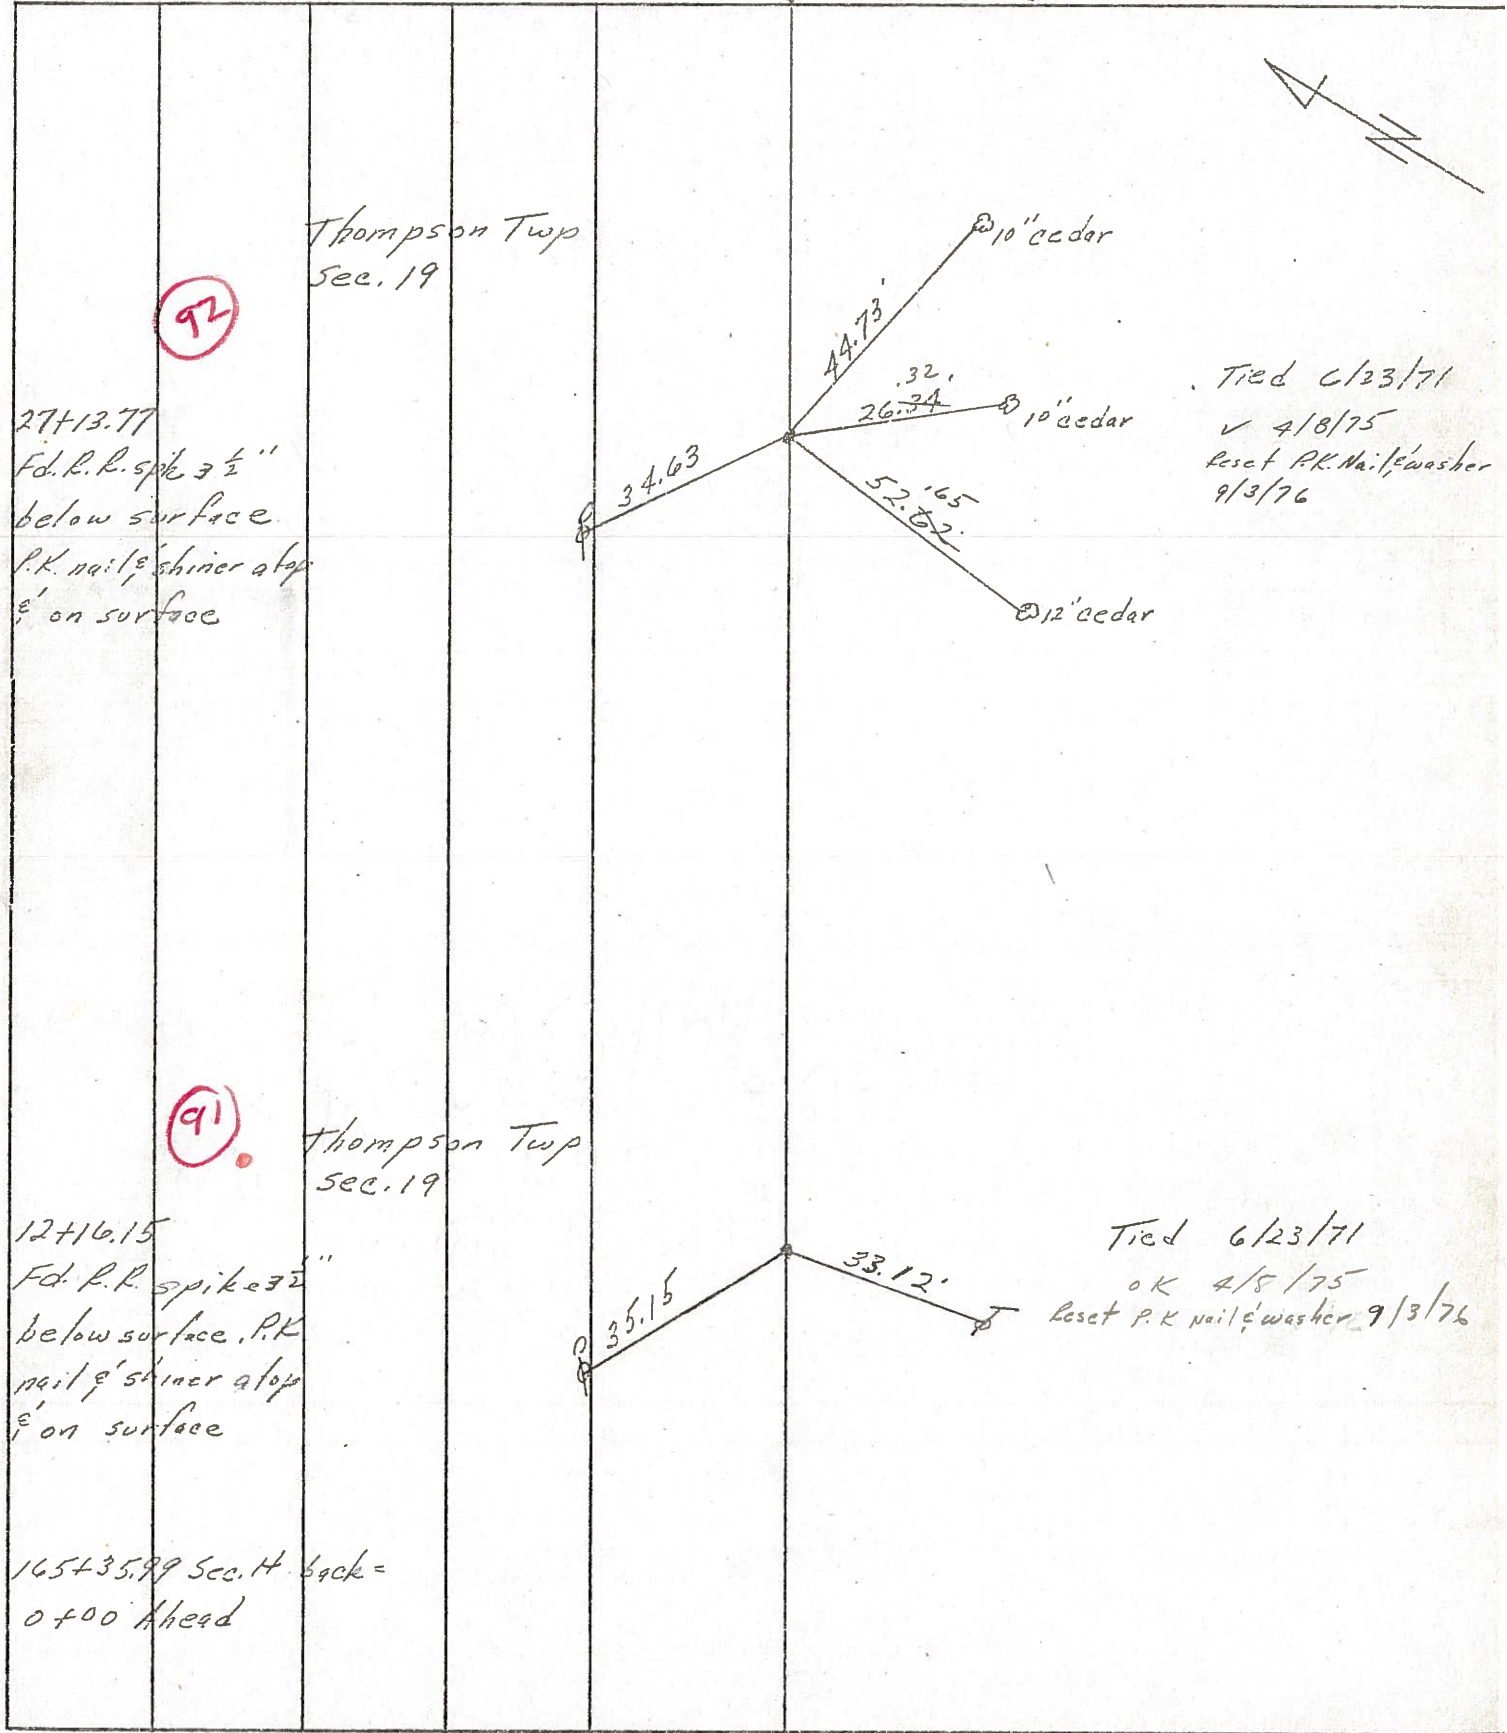 Thompson Twp
Sec. 19
92
27+13.77
Fd. R.R. spk 3 1/2"
below surface
P.K. nail & shiner atop
& on surface
10" cedar
44.73'
.32'
26.34
10" cedar
34.63
52.62'
.65
12" cedar
Tied 6/23/71
✓ 4/8/75
Reset P.K. Nail & washer
9/3/76
91
Thompson Twp
Sec. 19
12+16.15
Fd. R.R. spike 3 1/2"
below surface. P.K
nail & shiner atop
& on surface
35.15
33.12'
T
Tied 6/23/71
OK 4/8/75
Reset P.K Nail & washer 9/3/76
165+35.99 Sec. H back =
0+00 Ahead
N